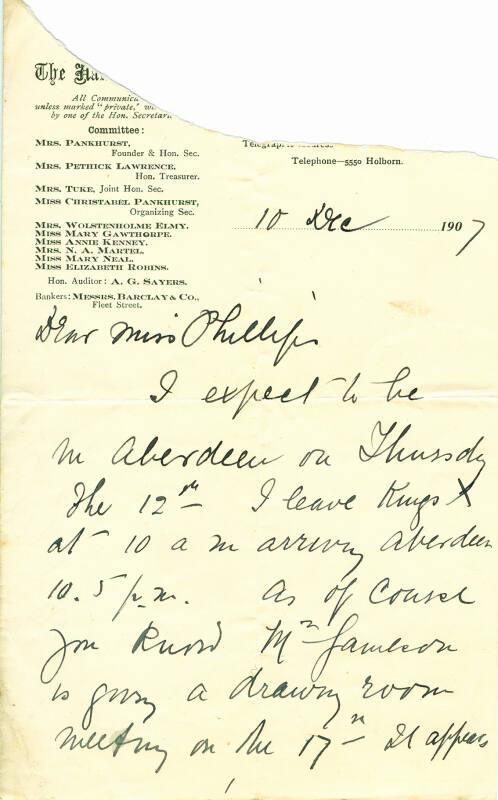 The
All Communica
unless marked "private," w
by one of the Hon. Secretari
Committee:
MRS. PANKHURST,
Founder & Hon. Sec.
MRS. PETHICK LAWRENCE,
Hon. Treasurer.
MRS. TUKE, Joint Hon. Sec.
MISS CHRISTABEL PANKHURST,
Organizing Sec.
MRS. WOLSTENHOLME ELMY.
MISS MARY GAWTHORPE.
MISS ANNIE KENNEY.
MRS. N. A. MARTEL.
MISS MARY NEAL.
MISS ELIZABETH ROBINS.
Hon. Auditor: A. G. SAYERS.
Bankers: MESSRS. BARCLAY & CO.,
Fleet Street.
Telephone—5550 Holborn.
10 Dec 1907
Dear Miss Phillips
I expect to be
in Aberdeen on Thursday
the 12th I leave Kings X
at 10 a m arriving Aberdeen
10.5 p.m. As of course
you know Mrs Jameson
is giving a drawing room
meeting on the 17th It appears